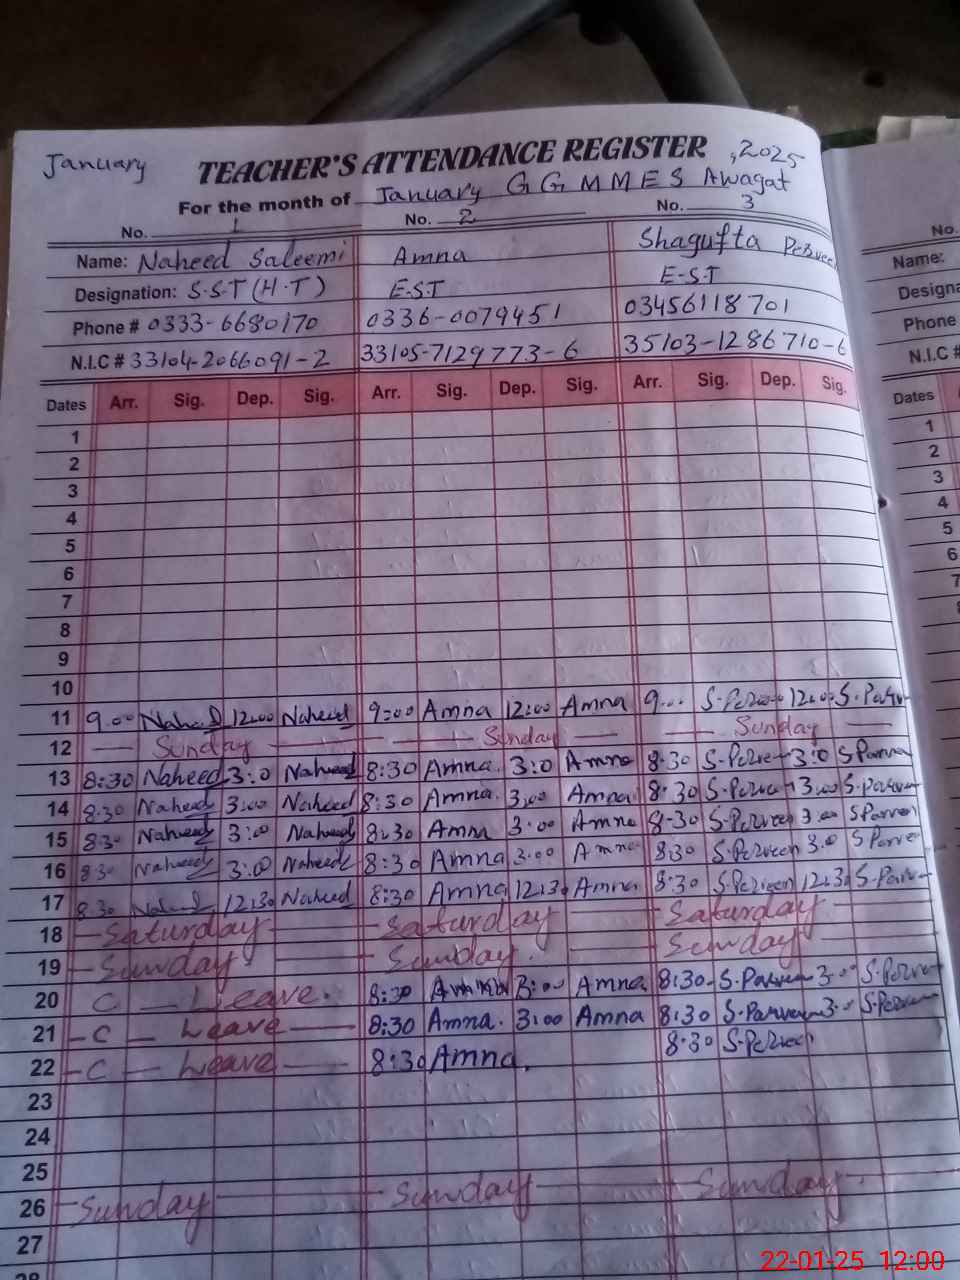 January TEACHER'S ATTENDANCE REGISTER , 2025
For the month of January GGMMES Awagat
No. 1 No. 2 No. 3
Name: Naheed Saleemi Amna Shagufta Perveen
Designation: S.S.T (H.T) E.S.T E.S.T
Phone # 0333-6680170 0336-0079451 03456118701
N.I.C # 33104-2066091-2 33105-7129773-6 35103-1286710-6
Dates Arr. Sig. Dep. Sig. Arr. Sig. Dep. Sig. Arr. Sig. Dep. Sig.
1
2
3
4
5
6
7
8
9
10
11 9.00 Naheed 12:00 Naheed 9:00 Amna 12:00 Amna 9... S.Perveen 12:00 S.Parveen
12 — Sunday — Sunday — Sunday —
13 8:30 Naheed 3:0 Naheed 8:30 Amna. 3:0 Amna 8.30 S.Perveen 3:0 S Parveen
14 8.30 Naheed 3:00 Naheed 8:30 Amna. 3:00 Amna 8.30 S.Perveen 3:00 S.Parveen
15 8:30 Naheed 3:00 Naheed 8:30 Amna 3:00 Amna 8-30 S.Perveen 3:00 S Parveen
16 8:30 Naheed 3:00 Naheed 8:30 Amna 3:00 Amna 8:30 S.Perveen 3.0 S Parveen
17 8:30 Naheed 12:30 Naheed 8:30 Amna 12:30 Amna 8:30 S.Perveen 12:30 S.Parveen
18 — Saturday — Saturday — Saturday
19 — Sunday — Sunday. — Sunday —
20 C — Leave. 8:30 Amna 3:00 Amna 8:30 S.Parveen 3:00 S.Perveen
21 — C — Leave — 8:30 Amna. 3:00 Amna 8:30 S.Parveen 3:00 S.Perveen
22 — C — Leave — 8:30 Amna. 8:30 S.Perveen
23
24
25
26 — Sunday — Sunday — Sunday.
27
28
No.
Name:
Designa
Phone
N.I.C #
Dates
1
2
3
4
5
6
7
22-01-25 12:00